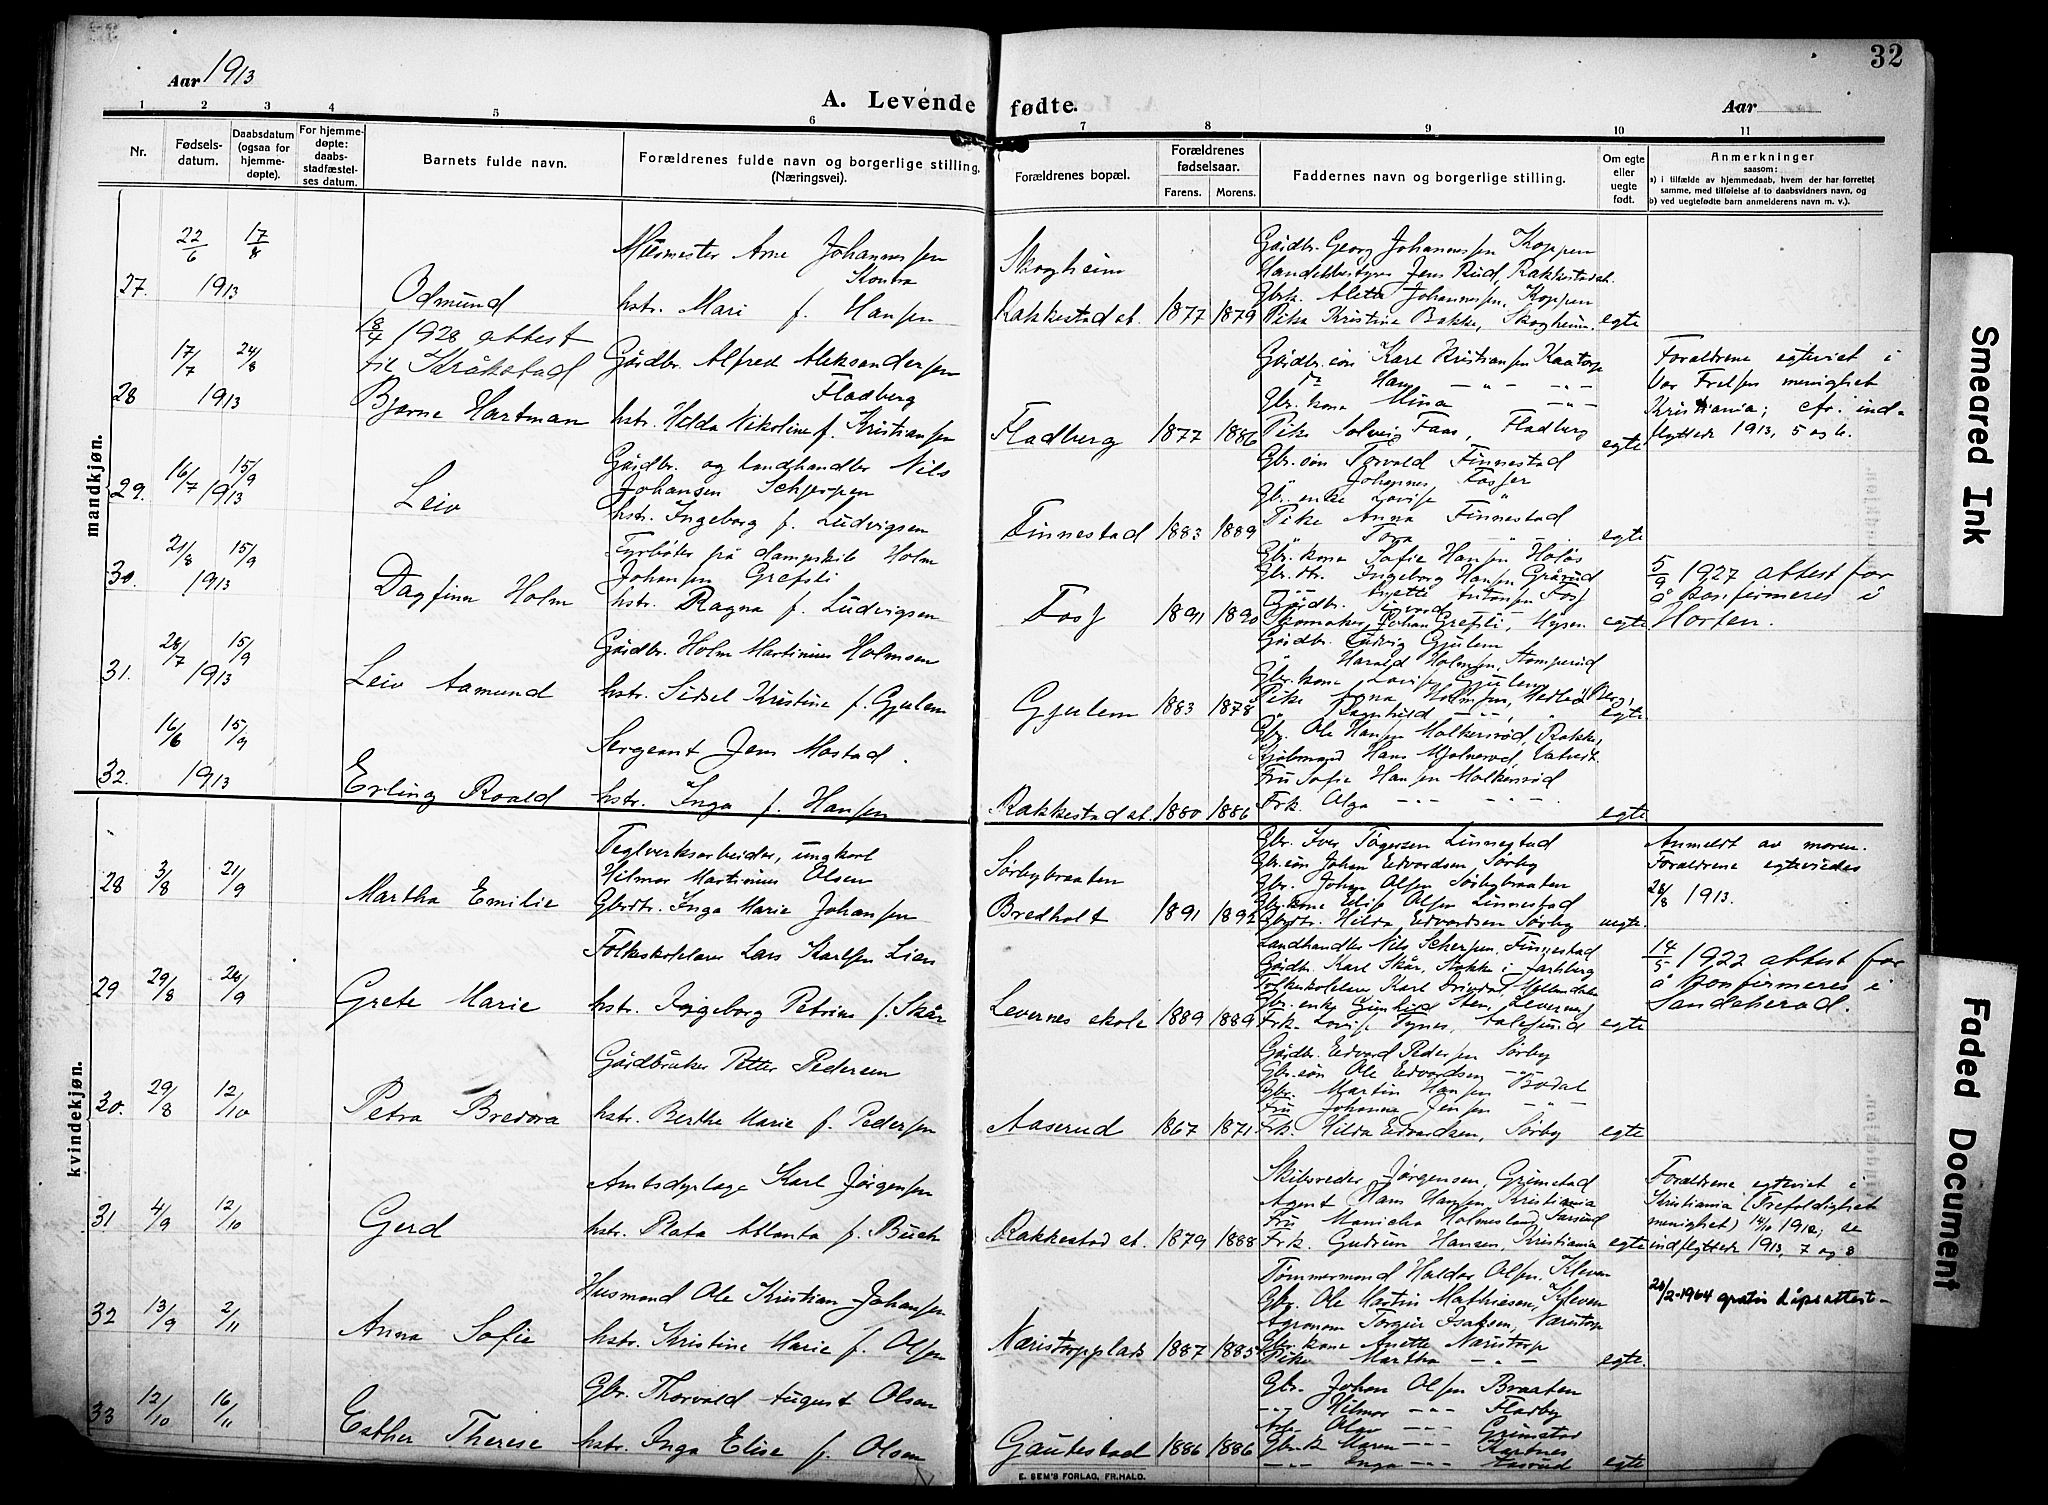 32
Aar 1913
A. Levende fødte.
Aar
1 2 3 4 5 6 7 8 9 10 11
Nr.
Fødsels-
datum.
Daabsdatum
(ogsaa for
hjemme-
døpte).
For hjemme-
døpte:
daabs-
stadfæstel-
ses datum.
Barnets fulde navn.
Forældrenes fulde navn og borgerlige stilling.
(Næringsvei).
Forældrenes bopæl.
Forældrenes
fødselsaar.
Farens. Morens.
Faddernes navn og borgerlige stilling.
Om egte
eller
uegte
født.
Anmerkninger
saasom:
a) i tilfælde av hjemmedaab, hvem der har forrettet
samme, med tilføielse af to daabsvidners navn, og
b) ved uegtefødte barn anmelderens navn m. v.).
mandkjøn.
27. 22/6 1913 17/8
Odmund
Arne Johannessen
hstr. Mari f. Hansen
Skogheim
Rakkestad st. 1877 1879
Gårdbr. Georg Johannessen Koppen
Handelsbestyrer Jens Rud, Rakkestad st.
Gbrk. Aleta Johannessen, Koppen
Pike Kristine Bakke, Skogheim.
egte
18/4 1928 attest
til Kråkstad
28 17/7 1913 24/8
Bjarne Hartman
Gårdbr. Alfred Aleksandersen
Fladberg
hstr. Hilda Nikoline f. Kristiansen
Fladberg 1877 1886
Gårdbr. søn Karl Kristiansen Kaatorp
do Hans — " — — " —
Gbr. kone Mina — " —
Pike Solveig Faas, Fladberg
egte
Forældrene egteviet i
Vor Frelsers menighet
Kristiania; cfr. ind-
flyttede 1913, 5 og 6.
29. 16/7 1913 15/9
Leiv
Gårdbr. og landhandler Nils
Johansen Schjerpen
hstr. Ingeborg f. Ludvigsen
Finnestad 1883 1889
Gbr. søn Torvald Finnestad
" Johannes Fosser
Gbr. enke Lovise "
Pike Anna Finnestad
" Tora — " —
egte
30. 21/8 1913 15/9
Dagfinn Holm
Fyrbøter på dampskib Holm
Johansen Grefsli
hstr. Ragna f. Ludvigsen
Foss 1891 1890
Gbr. kone Sofie Hansen Holøs
Gbr. dtr. Ingeborg Hansen Grårud
Skomaker Johan Grefsli, Mysen
egte
5/9 1927 attest for
å konfirmeres i
Horten.
31. 28/7 1913 15/9
Leiv Aamund
Gårdbr. Holm Martinius Holmsen
hstr. Sidsel Kristine f. Gjulem
Gjulem 1883 1878
Gårdbr. Ludvig Gjulem
" Harald Holmsen, Stomperud
Gbr. kone Lovise Gjulem
Pike Anna Holmsen,
" Ragnhild — " —
egte
32. 16/6 1913 15/9
Erling Roald
Sergeant Jens Mostad.
hstr. Inga f. Hansen
Rakkestad st. 1880 1886
Gbr. Ole Hansen Holkersrød, Rakke.
Hans
Fru Sofie Hansen Holkersrød
Frk. Olga — " — — " —
egte
kvindekjøn.
28 3/8 21/9
Martha Emilie
Teglverksarbeider, ungkarl
Hilmar Martinius Olsen
Gbrdtr. Inga Marie Johansen
Sørbybraaten
Bredholt 1891 1892
Gbr. Iver Torgersen Linnestad
Gbr. søn Johan Edvardsen, Sørby
Gbr. Johan Olsen Sørbybraaten
Gbr. kone Elise Olsen Linnestad
Gbrdtr. Hilda Edvardsen Sørby
uegte.
Anmeldt av moren.
Forældrene egteviedes
28/8 1913.
29 29/8 28/9
Grete Marie
Folkeskolelærer Lars Karlsen Lian
hstr. Ingeborg Petrine f. Skår
Levernes skole 1889 1889
Landhandler Nils Scherpen, Finnestad
Gårdbr. Karl Skår, Stokke i Jarlsberg
Gbr. enke Gunhild Steen, Levernes
Frk. Lovise Fynes, Aalesund
egte
14/5 1922 attest for
å konfirmeres i
Sandeherad.
30. 29/8 12/10
Petra Bredora
Gårdbruker Petter Pedersen
hstr. Berthe Marie f. Pedersen
Aaserud 1867 1871
Gårdbr. Edvard Pedersen Sørby
Gbr. søn Ole Edvardsen — " —
Gbr. Martin Hansen Bodal
Fru Johanna Jensen — " —
Frk. Hilda Edvardsen, Sørby
egte
31 4/9 12/10
Gerd
Amtsdyrlæge Karl Jørgensen
hstr. Plata Atlanta f. Buch
Rakkestad st. 1879 1888
Skibsreder Jørgensen, Grimstad
Agent Hans Hansen, Kristiania
Fru Manicha Holmesland, Farsund
Frk. Gudrun Hansen, Kristiania
egte
Forældrene egteviet i
Kristiania (Trefoldighet
menighet) 14/10 1912, se
indflyttede 1913, 7 og 8
32 13/9 2/11
Anna Sofie
Husmand Ole Kristian Johansen
hstr. Kristine Marie f. Olsen
Næristorpplads 1887 1885
Tømmermand Haldor Olsen, Kleven
Gbr. Ole Martin Mathiesen, Kleven
Agronom Torger Isaksen, Næristorp
Gbr. kone Anette Næristorp
Pike Martha — " —
egte.
28/2-1964 gratis dåpsattest-
33 12/10 16/11
Esther Therese
Gbr. Thorvald August Olsen
hstr. Inga Elise f. Olsen
Gautestad 1886 1886
Gbr. Johan Olsen Braaten
— " — Hilmar — " — Fladby
Olav — " — Grimstad
Gbr.k. Maren — " — Kartnes
— " — Inga — " — Aaserud
egte
E. SEM'S FORLAG, FR.HALD.
Smeared Ink
Faded Document